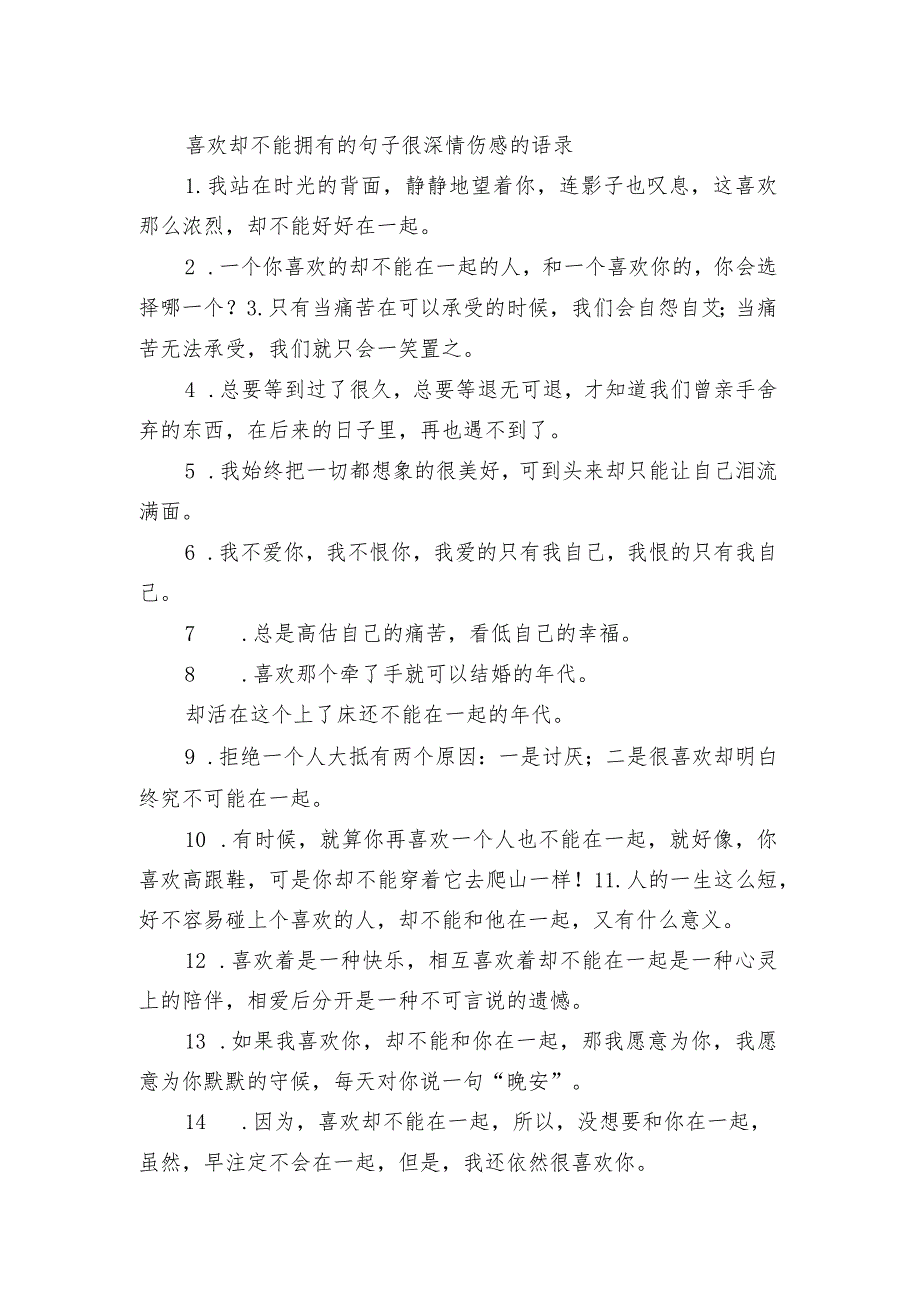 喜欢却不能拥有的句子很深情伤感的语录
1.我站在时光的背面，静静地望着你，连影子也叹息，这喜欢
那么浓烈，却不能好好在一起。
2 .一个你喜欢的却不能在一起的人，和一个喜欢你的，你会选
择哪一个？3.只有当痛苦在可以承受的时候，我们会自怨自艾；当痛
苦无法承受，我们就只会一笑置之。
4 .总要等到过了很久，总要等退无可退，才知道我们曾亲手舍
弃的东西，在后来的日子里，再也遇不到了。
5 .我始终把一切都想象的很美好，可到头来却只能让自己泪流
满面。
6 .我不爱你，我不恨你，我爱的只有我自己，我恨的只有我自
己。
7 .总是高估自己的痛苦，看低自己的幸福。
8 .喜欢那个牵了手就可以结婚的年代。
却活在这个上了床还不能在一起的年代。
9 .拒绝一个人大抵有两个原因：一是讨厌；二是很喜欢却明白
终究不可能在一起。
10 .有时候，就算你再喜欢一个人也不能在一起，就好像，你
喜欢高跟鞋，可是你却不能穿着它去爬山一样！11.人的一生这么短，
好不容易碰上个喜欢的人，却不能和他在一起，又有什么意义。
12 .喜欢着是一种快乐，相互喜欢着却不能在一起是一种心灵
上的陪伴，相爱后分开是一种不可言说的遗憾。
13 .如果我喜欢你，却不能和你在一起，那我愿意为你，我愿
意为你默默的守候，每天对你说一句“晚安”。
14 .因为，喜欢却不能在一起，所以，没想要和你在一起，
虽然，早注定不会在一起，但是，我还依然很喜欢你。